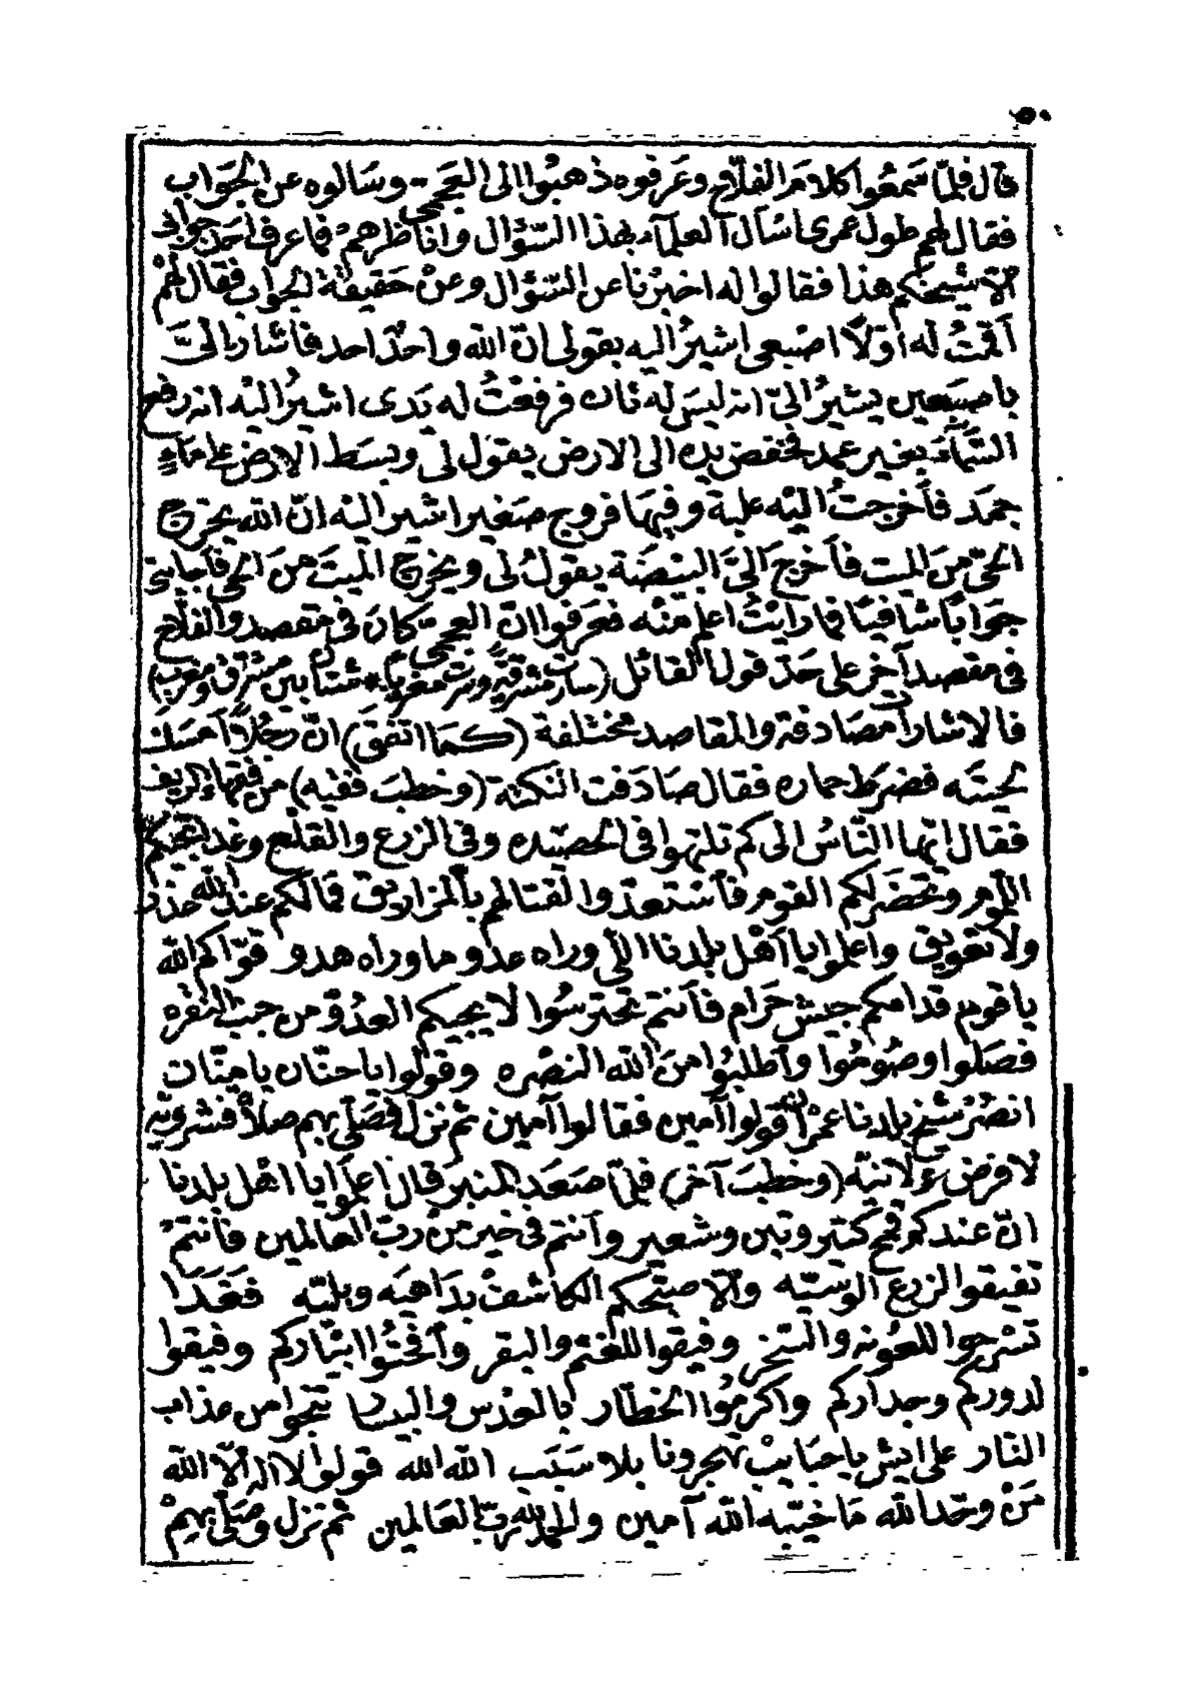 ٥٠
قال فلمّا سَمعُوا كلامَ الفلّاح وعَرفوه ذهبُوا الى العَجَمى وسَالوه عن الجَواب
فقال لهم طول عمرى اسْأل العلمآء بهذا السّؤال واناظرهمْ فما عرف احَد جوابى
الّا شيخكم هذا فقالوا له اخبرنا عن السّؤال وعنْ حَقيقة الجواب فقال لهمْ
اَقمتُ له اوّلاً اصْبعى اشيرُ اليه بقولى انّ الله واحدٌ احد فاشار الىَّ
باصبَعين يشيرُ الىّ انه ليسَ له ثان فرفعْتُ له يَدى اشيرُ اليْه انه رفع
السّمآءَ بغير عمد فخفض يده الى الارض يقول لى وبسَط الارض على مَآءٍ
جمَد فاَخرجتُ اليْه علبة وفيهَا فروج صَغير اشير اليْه انّ الله يخرج
الحَىّ منَ الميت فاَخرجَ الىَّ البيْضَة يقولُ لى ويخرج الميتَ منَ الحىّ فاَجابنى
جوَابًا شافيًا فما رايْتُ اعلم منْه فعَرفوا انّ العجمى كانَ فى مقصد والفلّاح
فى مقصد آخر على حَدّ قول القائل (سارت مشرقةً وسرت مغربًا * شتّان بين مشرّق ومغرب)
فالاشارة مصَادفة والمقاصد مختلفة (كمَا اتفقَ) انّ رجُلاً اَمسَك
لحيتَه فضرَط حماره فقال صَادَفت النّكتة (وخطبَ فقيه) من فقهآء الريف
فقال ايّها النّاسُ الى كم تلتهوا فى الحصيْده وفى الزرع والقلع وغدا يجيكم
اللّوم ويحضَر لكم القوم فاَسْتعدّوا لقتالهم باَلمزاريق فما لكم عند الله
ولا تعويق واعلموا يا اَهْل بلدنا اللّى وراه عدو ما وراه هدو قوّاكم الله
يا قوم قدامكم جيش حَرام فاَنتم تحترسُوا لا يجيكم العدُوّ من جنب النقره
فصَلوا وصُومُوا واَطلبُوا منَ الله النصْره وقولوا يا حنّان يا منّان
انصُرْ شيْخ بلدنا قولوا آمين فقالوا آمين ثم نزل فصَلّى بهم صلاةً
لا فرض ولا نيّه (وخطبَ آخر) فلمّا صَعَد المنبرَ قال اعلمُوا يا اهْل بلدنا
انّ عندكم قمح كتير وتبن وشعير واَنتم فى خير منْ ربّ العَالمين فاَنتمْ
تفيقوا لزرع الوسيّه والّا صبّحكم الكاشفْ بدَاهيَه وبليّه فغَدا
تسْرحوا للعُونه والسّخر وفيقوا للغنم والبقر واَفحتُوا ابيَاركم وفيقوا
لدوركم وجداركم واكرمُوا الخطّار بالعَدْس والبيسار تنجوا من عذاب
النار على ايش يا حبَايبْ تهجرونا بلا سَبَب الله الله قولوا لا اله الّا الله
مَنْ وحّد الله مَا خيّبه الله آمين والحمد لله ربّ العَالمين ثم نزل وصَلّى بهمْ